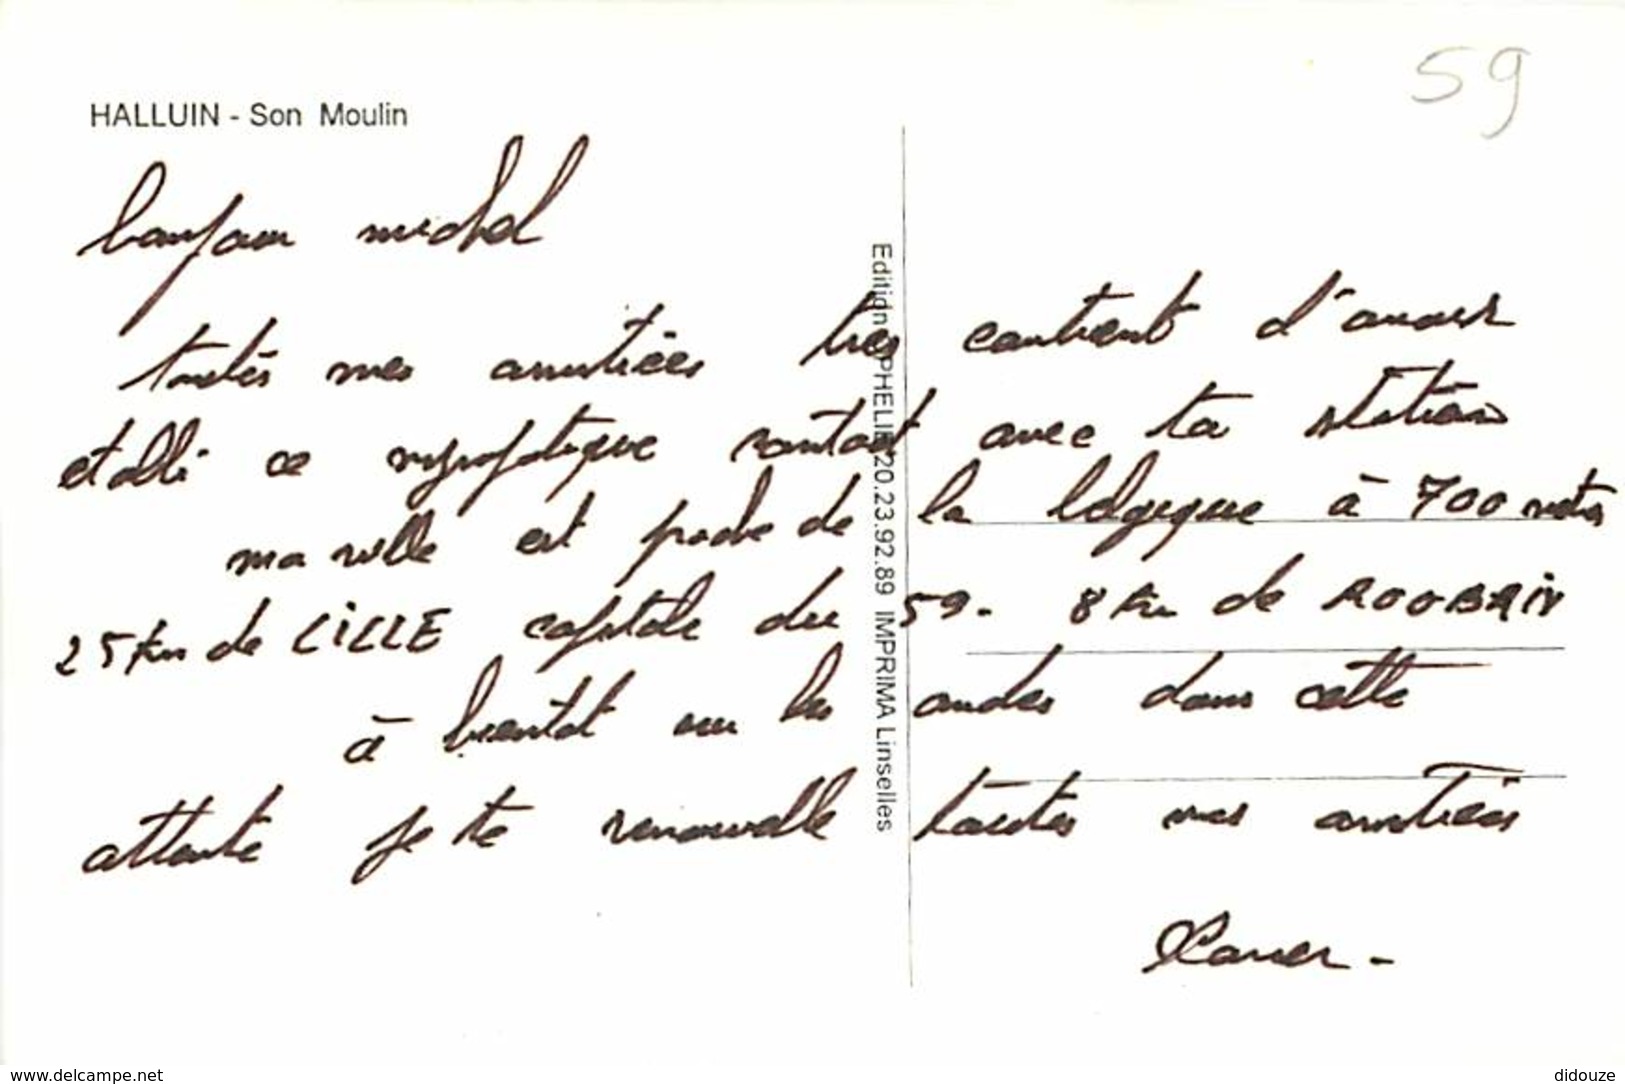 59
HALLUIN - Son Moulin
bonjour michel
toutes mes amitiées très content d'avoir
etabli ce contact avec ta station
ma ville est proche de la belgique à 700 metres
25 km de LILLE capitale du 59. 8 km de ROOBAIX
à bientot sur les ondes dans cette
attente je te renouvelle toutes mes amitiées
Xavier -
Edition OPHELIE 20.23.92.89 IMPRIMA Linselles
www.delcampe.net
didouze